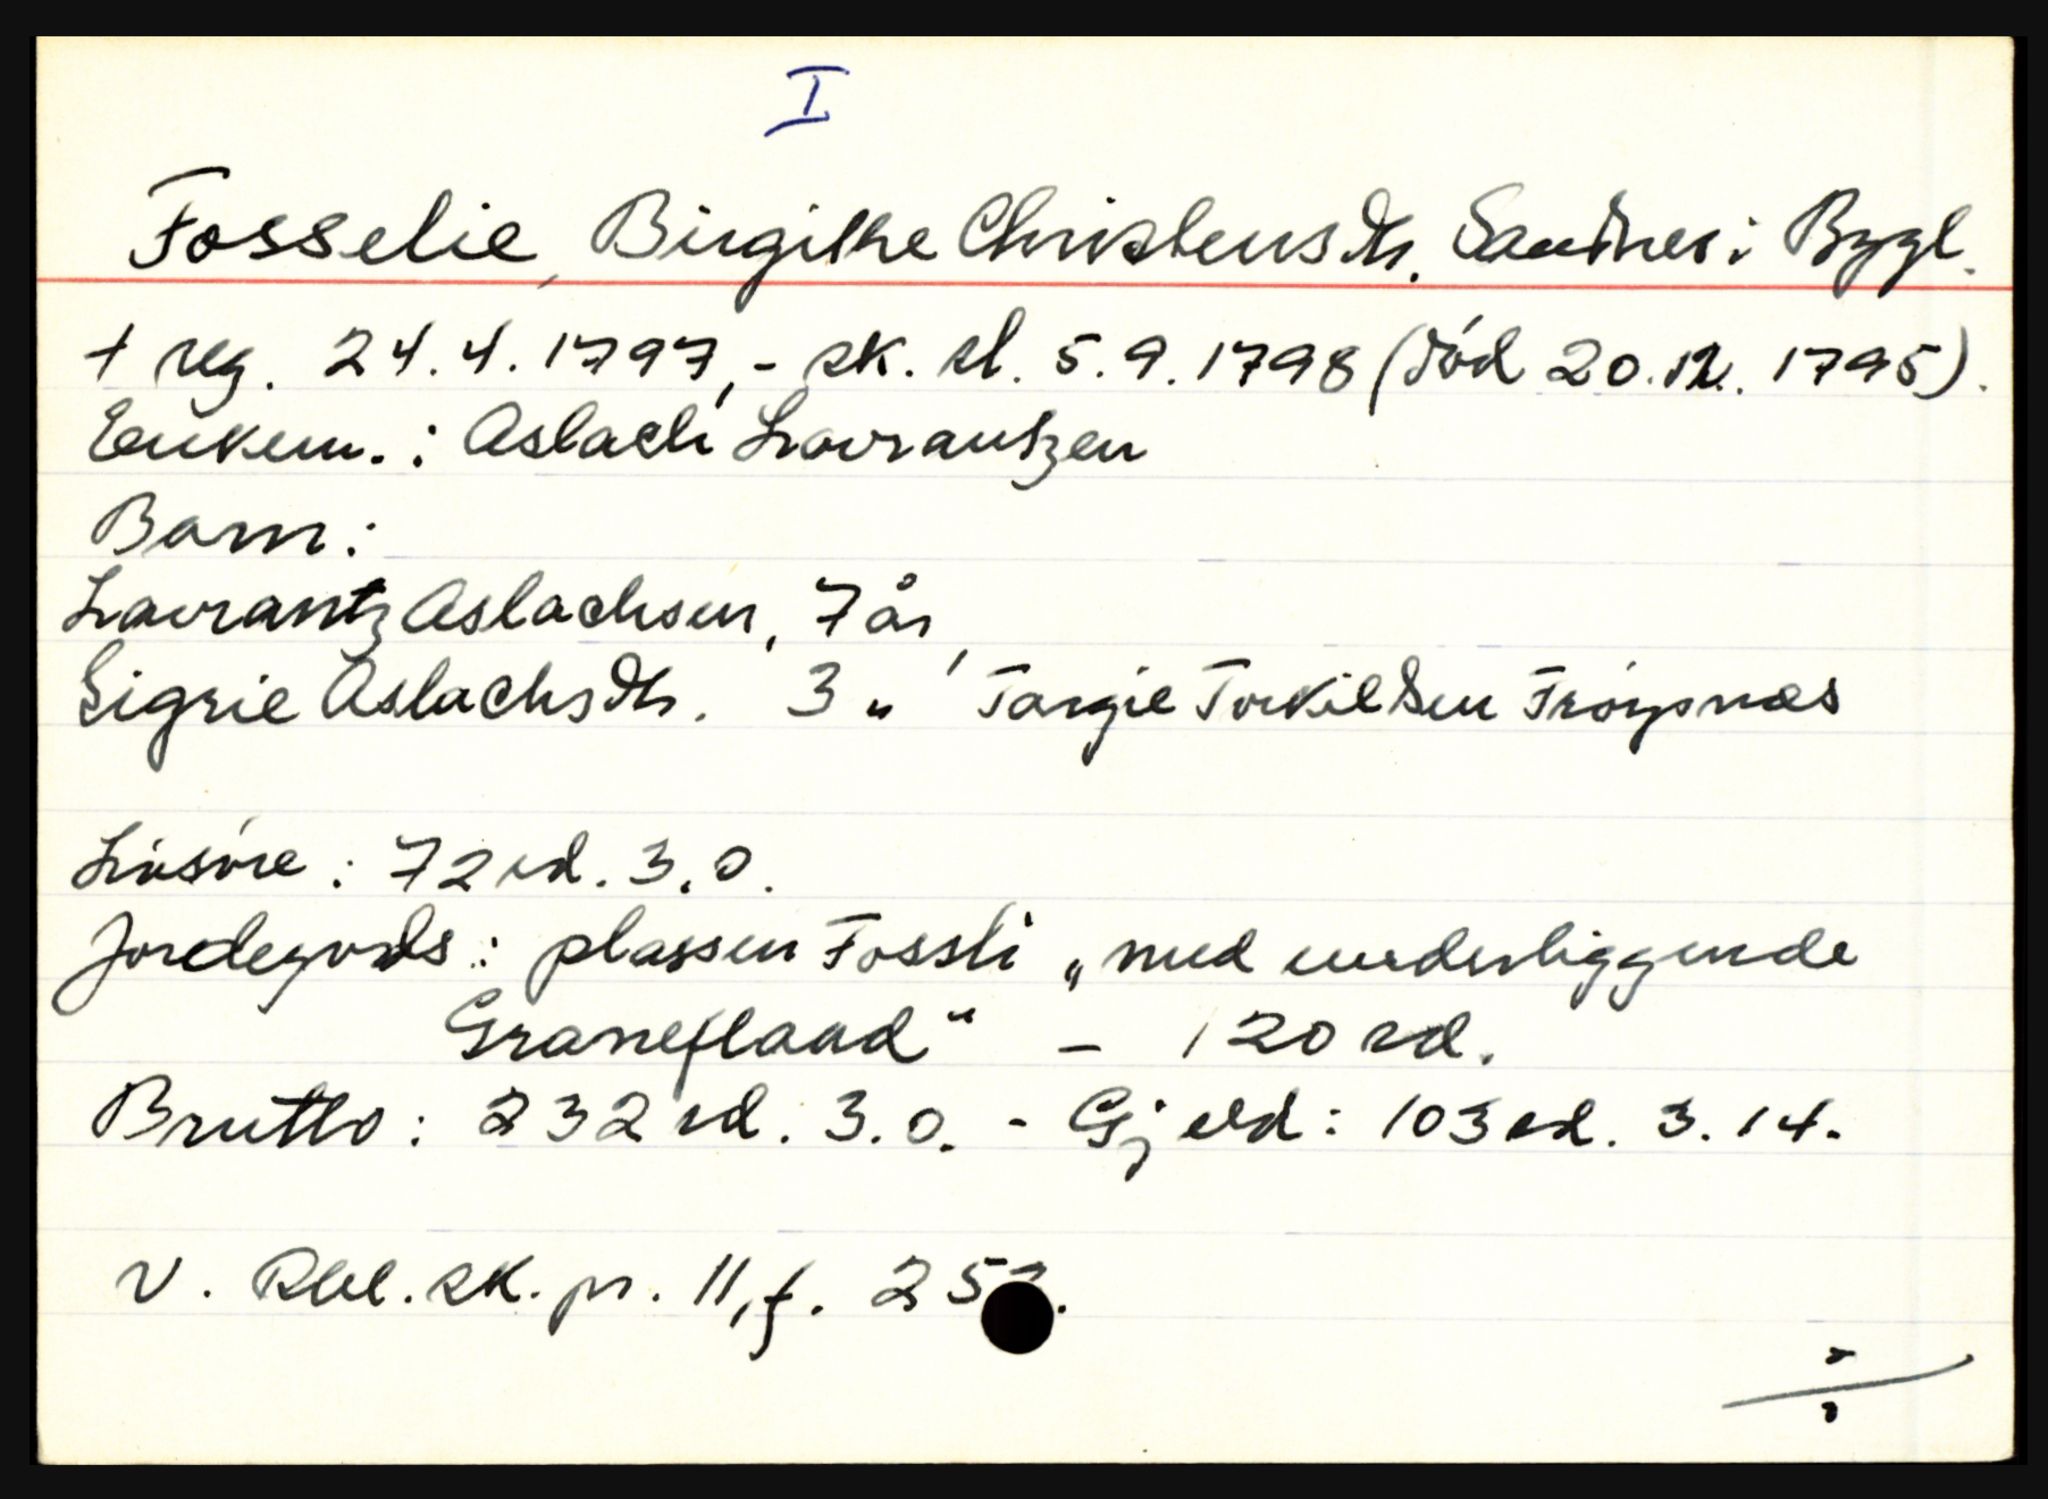 I
Fosselie, Birgithe Christensdtr. Sandnes i Bygl.
+ reg. 24.4.1797, - sk. sl. 5.9.1798 (död 20.12.1795).
Enkem.: Aslach Lavrantzen
Barn:
Lavrantz Aslachsen, 7 år,
Sigrie Aslachsdtr. 3 " Targie Torkildsen Fröysnæs
Lösöre: 72 rd. 3. 0.
Jordegods: plassen Fossli „med underliggende
Graneflaad" - 120 rd.
Brutto: 232 rd. 3. 0. - Gjeld: 103 rd. 3. 14.
V. Rbl. sk. pr. 11, f.
÷